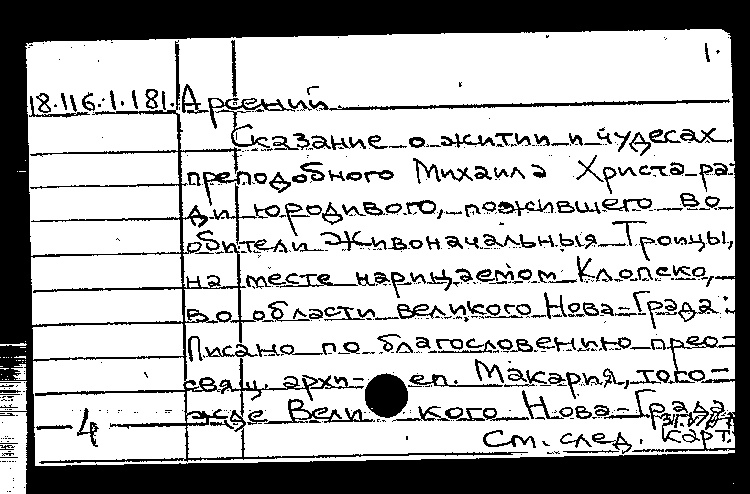 1.
18.116.1.181. Арсений.
Сказание о житии и чудесах
преподобного Михаила Христа ра-
ди юродивого, пожившего во
обители Живоначальныя Троицы,
на месте нарицаемом Клопско,
во области великого Нова-Града:
Писано по благословению прео-
свящ. архи-еп. Макария, того-
жде Великого Нова-Града
4
См. след. карт.